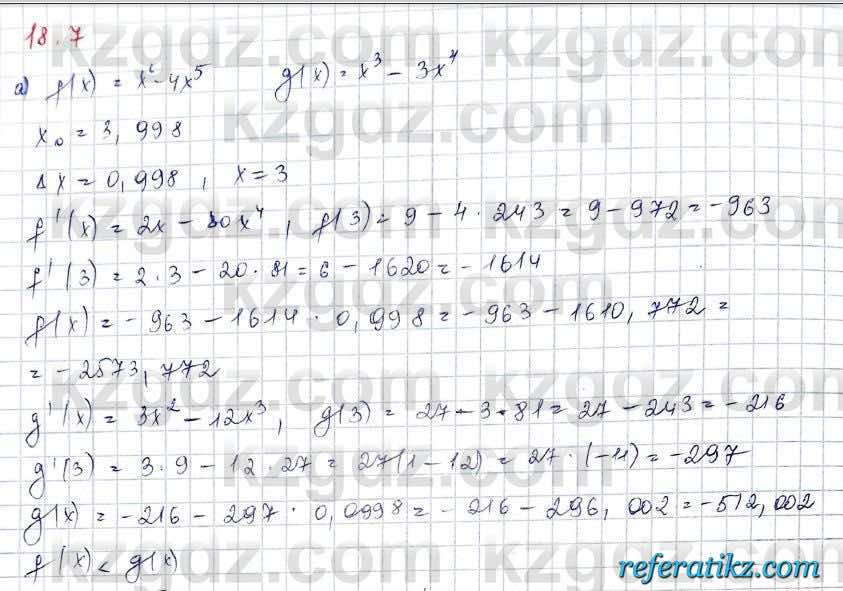 18.7
а) f(x) = x² - 4x⁵ g(x) = x³ - 3x⁴
x₀ = 3,998
Δx = 0,998, x = 3
f'(x) = 2x - 20x⁴, f(3) = 9 - 4 · 243 = 9 - 972 = -963
f'(3) = 2 · 3 - 20 · 81 = 6 - 1620 = -1614
f(x) = -963 - 1614 · 0,998 = -963 - 1610,772 =
= -2573,772
g'(x) = 3x² - 12x³, g(3) = 27 - 3 · 81 = 27 - 243 = -216
g'(3) = 3 · 9 - 12 · 27 = 27(1 - 12) = 27 · (-11) = -297
g(x) = -216 - 297 · 0,0998 = -216 - 296,002 = -512,002
f(x) < g(x)
referatikz.com
kzgdz.com